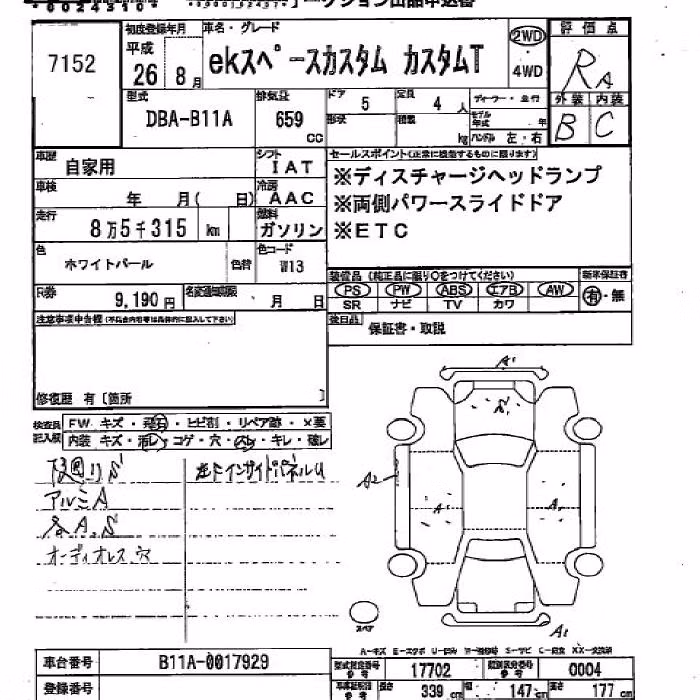 7152
初度登録年月 車名・グレード
平成 26 8月
ekスペースカスタム カスタムT
2WD
4WD
評価点
RA
外装 内装
B C
型式 DBA-B11A
排気量 659 cc
ドア 5 定員 4 人
形状 積載 kg
ディーラー・並行
モデル年式 年
ハンドル 左・右
車歴 自家用
シフト IAT
セールスポイント(正常に機能するものに限ります)
※ディスチャージヘッドランプ
※両側パワースライドドア
※ETC
車検 年 月( 日)
冷房 AAC
走行 8万5千315 km
燃料 ガソリン
色 ホワイトパール 色替
色コード W13
R券 9,190円
名変通知期限 月 日
装備品(純正品に限り○をつけてください)
新車保証書
PS PW ABS エアB AW
有・無
SR ナビ TV カワ
後日品 保証書・取説
注意事項申告欄(不具合内容等は具体的に記入して下さい)
修復歴 有[箇所 ]
検査員記入欄
FW キズ・飛石・ヒビ割・リペア跡・×要
内装 キズ・汚レ・コゲ・穴・スレ・キレ・破レ
アルミA
各A.S
オーディオレス穴
左Fインサイドパネルu
A1
S1
A2
A1
A1
A1
スペア
A-キズ E-エクボ U-凹み W-補修跡 S-サビ C-腐食 XX-交換済
車台番号 B11A-0017929
登録番号
型式指定番号参考 17702
類別区分番号参考 0004
長さ 339 cm 幅 147 cm 高さ 177 cm